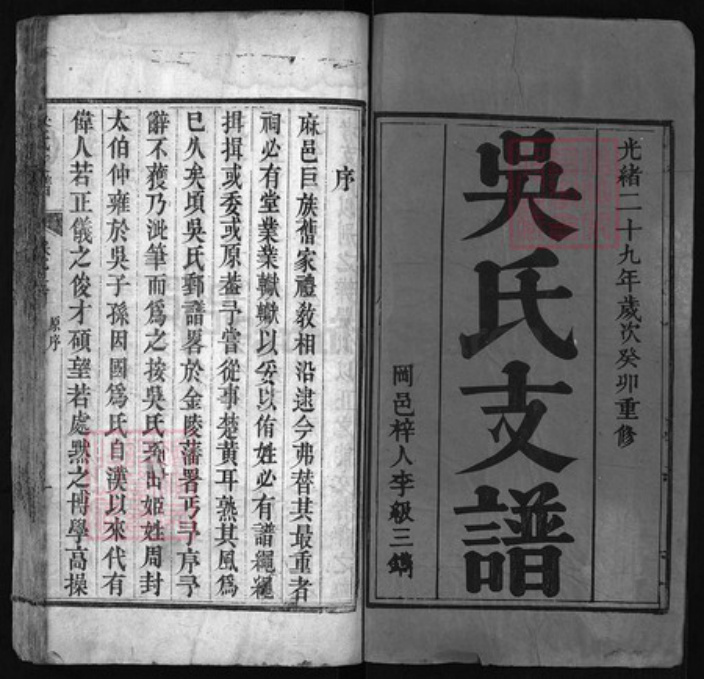 光緒二十九年歲次癸卯重修
吳氏支譜
岡邑梓人李級三鐫
序
麻邑巨族舊家禮敎相沿逮今弗替其最重者
祠必有堂業業轍轍以妥以侑姓必有譜繩繩
揖揖或委或原蓋予嘗從事楚黃耳熟其風爲
已久矣頃吳氏郵譜畧於金陵藩署丐予序予
辭不獲乃泚筆而爲之按吳氏系出姬姓周封
太伯仲雍於吳子孫因國爲氏自漢以來代有
偉人若正儀之俊才碩望若處默之博學高操
原序